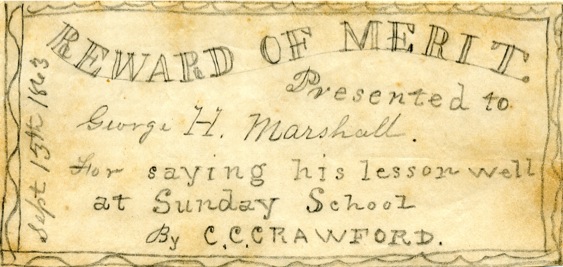 REWARD OF MERIT.
Presented to
George H. Marshall.
For saying his lesson well
at Sunday School
By C.C.CRAWFORD.
Sept 13th 1863